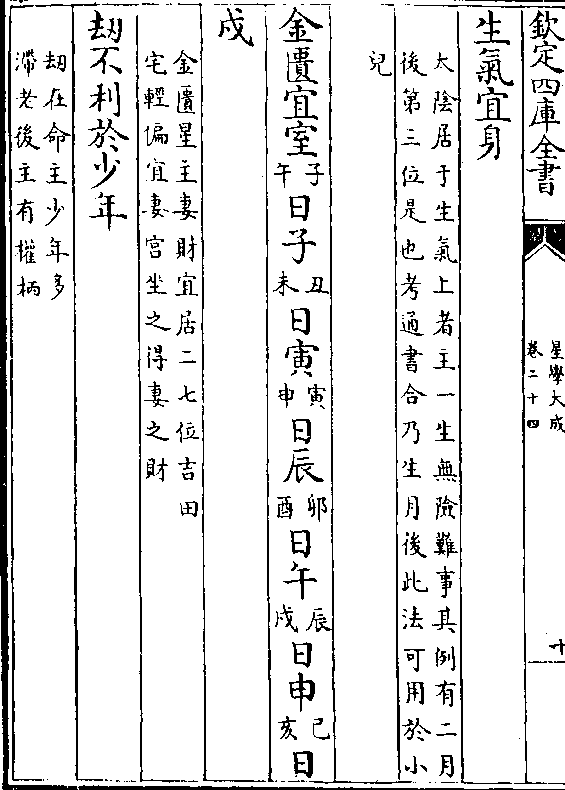 欽定四庫全書
星學大成
卷二十四
十
生氣宜身
太陰居于生氣上者主一生無險難事其例有二月
後第三位是也考通書合乃生月後此法可用於小
兒
金匱宜室子午日子丑未日寅寅申日辰卯酉日午辰戍日申巳亥日
戍
金匱星主妻財宜居二七位吉田
宅輕偏宜妻宮坐之得妻之財
刼不利於少年
刼在命主少年多
滯老後主有權柄